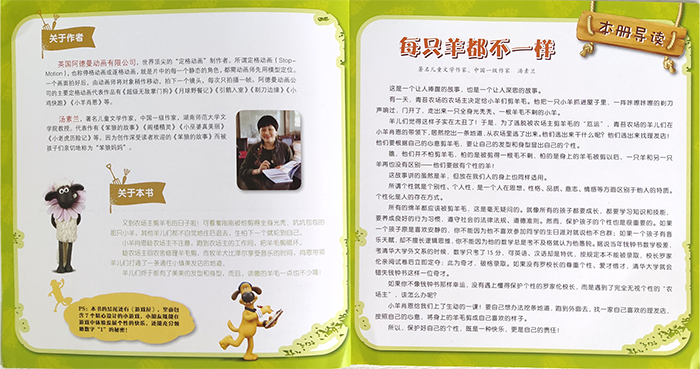 关于作者
英国阿德曼动画有限公司，世界顶尖的“定格动画”制作者。所谓定格动画（Stop-
Motion），也称停格动画或逐格动画，就是片中的每一个静态的角色，都需动画师先用模型定位，
一个画面拍好后，由动画师将对象稍作移动，拍下一个镜头，每次只拍摄一帧。阿德曼动画公
司的主要定格动画代表作品有《超级无敌掌门狗》《月球野餐记》《引鹅入室》《剃刀边缘》《小
鸡快跑》《小羊肖恩》等。
汤素兰，著名儿童文学作家、中国一级作家，湖南师范大学文
学院教授。代表作有《笨狼的故事》《阁楼精灵》《小巫婆真美丽》
《小老虎历险记》等，因为创作深受读者欢迎的《笨狼的故事》而被
孩子们亲切地称为“笨狼妈妈”。
关于本书
又到农场主摁羊毛的日子啦！可看着刚刚被他剪得全身光秃、坑坑洼洼的
那只小羊，其他羊儿都不自觉地往后退去，生怕下一个就轮到自己。
小羊肖恩趁农场主不注意，跑到农场主的工作间，把羊毛剪破坏。
PS：本书的结尾还有《游戏屋》，里面包
含了7个精心设计的小游戏。小朋友既能在
游戏中体验发展个性的快乐，还能充分领
略数字“1”的秘密！
本册导读
每只羊都不一样
著名儿童文学作家、中国一级作家　汤素兰
这是一个让人捧腹的故事，也是一个让人深思的故事。
有一天，青苔农场的农场主决定给小羊们剪羊毛。他把一只小羊抓进屋子里，一阵咔嚓咔嚓的剃刀
声响过，门开了，走出来一只全身光秃秃、一根羊毛不剩的小羊。
羊儿们觉得这样子实在太丑了！于是，为了逃脱被农场主剪羊毛的“厄运”，青苔农场的羊儿们在
小羊肖恩的带领下，居然挖出一条地道，从农场里逃了出来。他们逃出来干什么呢？他们逃出来找理发店！
他们要根据自己的心意剪羊毛，要让自己的发型和身型显出自己的个性。
瞧，他们并不怕剪羊毛，怕的是被剪得一根毛不剩，怕的是身上的羊毛被剪以后，一只羊和另一只
羊再也没有区别——他们要做有个性的羊！
这故事讲的虽然是羊，但放在我们人的身上也同样适用。
所谓个性就是个别性、个人性，是一个人在思想、性格、品质、意志、情感等方面区别于他人的特质。
个性化是人的存在方式。
所有的绵羊都应该被剪羊毛，这是毫无疑问的。就像所有的孩子都要成长，都要学习知识和技能，
要养成良好的行为习惯，遵守社会的法律法规、道德准则。然而，保护孩子的个性也是很重要的。如果
一个孩子原是喜欢安静的，你不能因为他不喜欢参加同学的生日派对就说他不合群；如果一个孩子有音
乐天赋，却不擅长逻辑思维，你不能因为他的数学总是考不及格就认为他愚钝。据说当年钱钟书数学极差，
考清华大学外文系的时候，数学只考了15分，可英语、汉语却是特优，按规定本不能被录取。校长罗家
伦亲阅试卷后立即定夺：此为奇才，破格录取。如果没有罗校长的尊重个性、爱才惜才，清华大学就会
错失钱钟书这样一位奇才。
如果你不像钱钟书那样幸运，没有遇上懂得保护个性的罗家伦校长，而是遇到了完全无视个性的“农
场主”，该怎么办呢？
小羊肖恩给我们上了生动的一课！要自己想办法挖条地道，跑到外面去，找一家自己喜欢的理发店，
按照自己的心意，将身上的羊毛剪成自己喜欢的样子。
所以，保护好自己的个性，既是一种快乐，更是自己的责任！